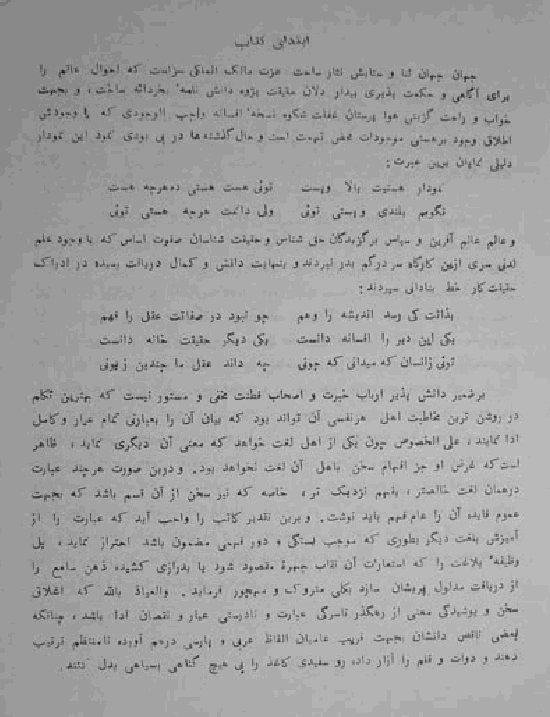 ابتدای کتاب
جهان جهان ثنا و ستایش نثار ساحت عزت مالک الملکی سزاست که احوال عالم را
برای آگاهی و حکمت پذیری بیدار دلان حقیقت پژوه دانش نامهٔ بخردانه ساخت، و بجهت
خواب و راحت گزینی هوا پرستان غفلت شکوه نسخهٔ افسانه واجب الوجودی که با وجودش
اطلاق وجود برهستی موجودات محض تهمت است و حال گذشته‌ها در پی بودی نمود این نمودار
دلیلی نمایان برین عبرت:
نمودار هستیت بالا و پست توئی هست هستی ده هرچه هست
نگویم بلندی و پستی توئی ولی دانمت هرچه هستی توئی
و عالم عالم آفرین و سپاس برگزیدگان حق شناس و حقیقت شناسان صفوت اساس که با وجود علم
لدنی سری ازین کارگاه سر درگم بدر نبردند و بنهایت دانش و کمال دریافت رسیده در ادراک
حقیقت کار خط بنادانی سپردند:
بذاتت کی رسد اندیشه را وهم چو نبود در صفاتت عقل را فهم
یکی این دیر را افسانه دانست یکی دیگر حقیقت خانه دانست
توئی زانسان که میدانی که چونی چه داند عقل ما چندین زبونی
برضمیر دانش پذیر ارباب خبرت و اصحاب فطنت مخفی و مستور نیست که بهترین تکلم
در روشن ترین مخاطبت اهل هرنفسی آن تواند بود که بیان آن را بعبارتی تمام عیار و کامل
ادا نمایند، علی الخصوص چون یکی از اهل لغت خواهد که معنی آن دیگری نماید، ظاهر
است که غرض او جز افهام سخن باهل آن لغت نخواهد بود. و درین صورت هرچند عبارت
درهمان لغت خالصتر، بفهم نزدیک تر، خاصه که نیز سخن از آن قسم باشد که بجهت
عموم فایده آن را عام فهم باید نوشت. و برین تقدیر کاتب را واجب آید که عبارت را از
آمیزش بلغت دیگر بطوری که موجب بستگی و دور فهمی مضمون باشد احتراز نماید، بل
وظیفهٔ بلاغت را که استعارات آن نقاب چهرهٔ مقصود شود یا بدرازی کشیده ذهن سامع را
از دریافت مدلول پریشان سازد بکلی متروک و مهجور فرماید. والعیاذ بالله که اغلاق
سخن و پوشیدگی معنی از رهگذر نارسرگی عبارت و نادرستی عیار و نقصان ادا باشد، چنانکه
بعضی ناقص دانشان بجهت فریب عامیان الفاظ عربی و پارسی درهم آورده نامنتظم ترتیب
دهند و دوات و قلم را آزار داده رو سفیدی کاغذ را بی هیچ گناهی بسیاهی بدل کنند.